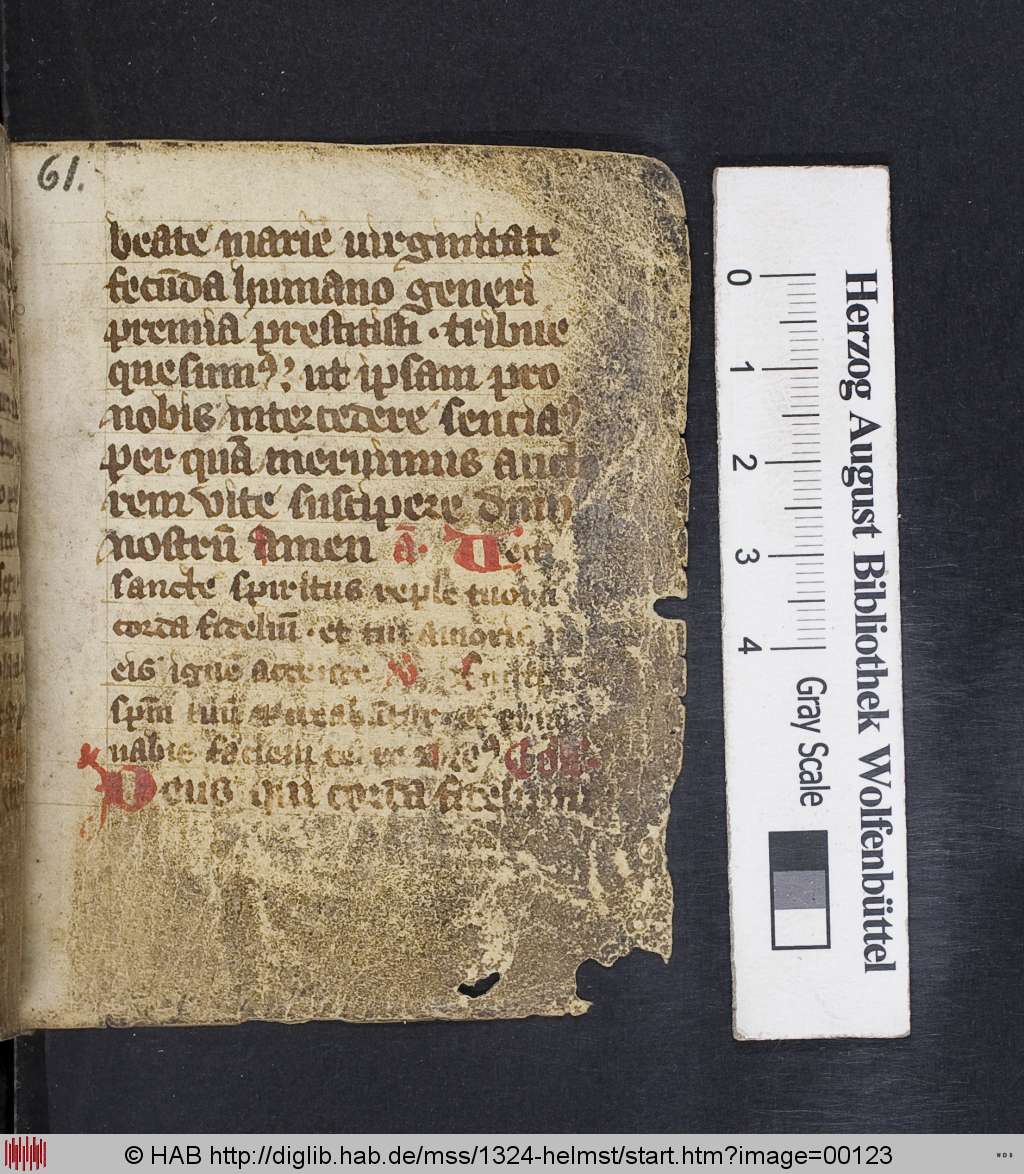 61.
beate marie uirginitate
fecūda humano generi
premia prestitisti · tribue
quesumꝰ ut ipsam pro
nobis intercedere senciaꝰ
per quā meruimus aucto
rem vite suscipere dnm
nostrū amen ā. Ueni
sancte spiritus reple tuoru
corda fideliū · et tui amoris
eis ignē accende
spm tuū
nabis faciem terre
Deus qui corda fidelium
Herzog August Bibliothek Wolfenbüttel
0 1 2 3 4
Gray Scale
© HAB http://diglib.hab.de/mss/1324-helmst/start.htm?image=00123